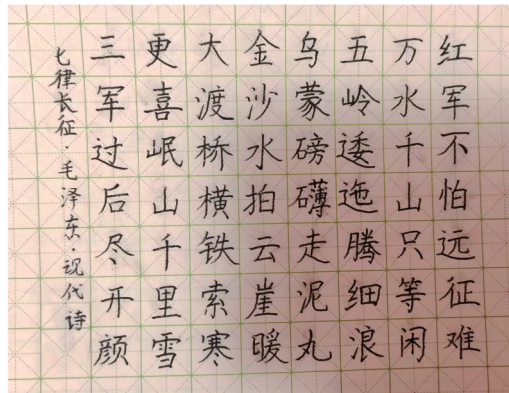 红军不怕远征难
万水千山只等闲
五岭逶迤腾细浪
乌蒙磅礴走泥丸
金沙水拍云崖暖
大渡桥横铁索寒
更喜岷山千里雪
三军过后尽开颜
七律长征·毛泽东·现代诗